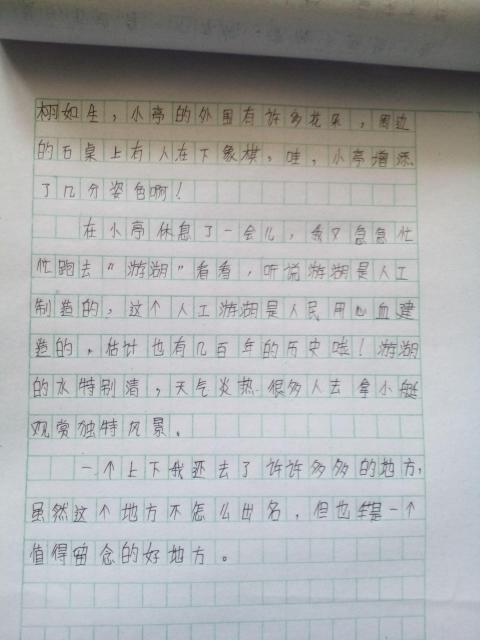 栩如生，小亭的外围有许多花朵，周边
的石桌上有人在下象棋，哇，小亭增添
了几分姿色啊！
在小亭休息了一会儿，我又急急忙
忙跑去“游湖”看看，听说游湖是人工
制造的，这个人工游湖是人民用心血建
造的，估计也有几百年的历史哇！游湖
的水特别清，天气炎热 很多人去拿小艇
观赏独特风景。
一个上下我还去了许许多多的地方，
虽然这个地方不怎么出名，但也是一个
值得留念的好地方。